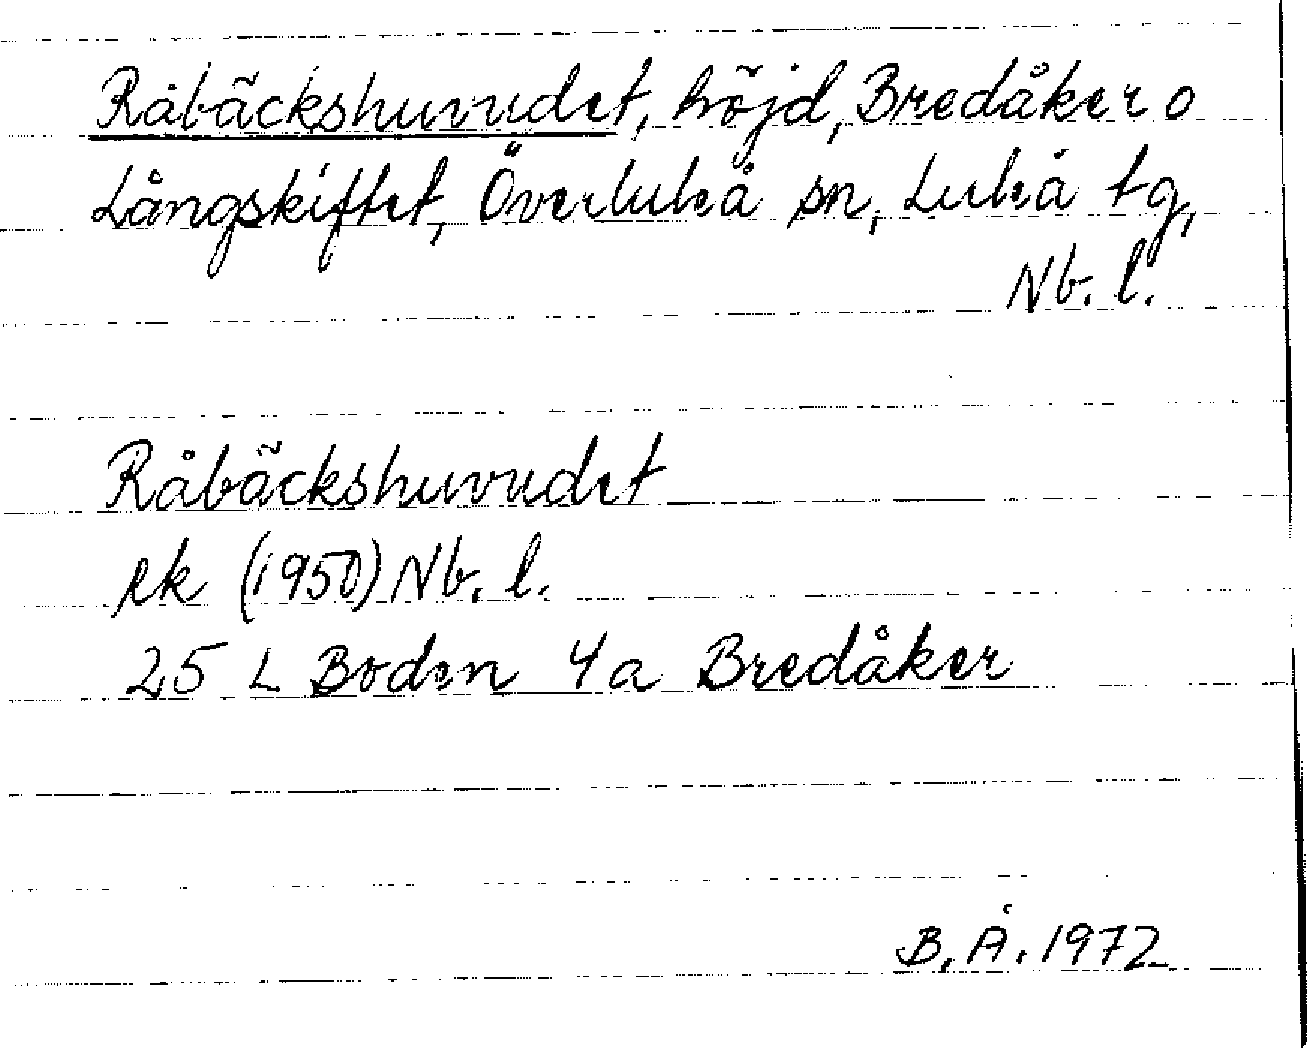 Råbäckshuvudet, höjd, Bredåker o
Långskiftet, Överluleå sn, Luleå tg,
Nb. l.
Råbäckshuvudet
rk (1950) Nb. l.
25 L Boden 4a Bredåker
B. Å. 1972